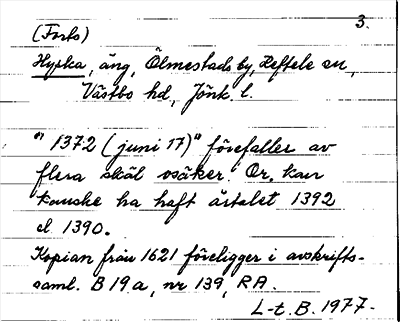 3.
(Forts)
Hyrka, äng, Ölmestads by, Reftele sn,
Västbo hd, Jönk. l.
"1372 (juni 17)" förefaller av
flera skäl osäker. Or. kan
kanske ha haft årtalet 1392
el. 1390.
Kopian från 1621 föreligger i avskrifts-
saml. B 19 a, nr 139, RA.
L-t. B. 1977.